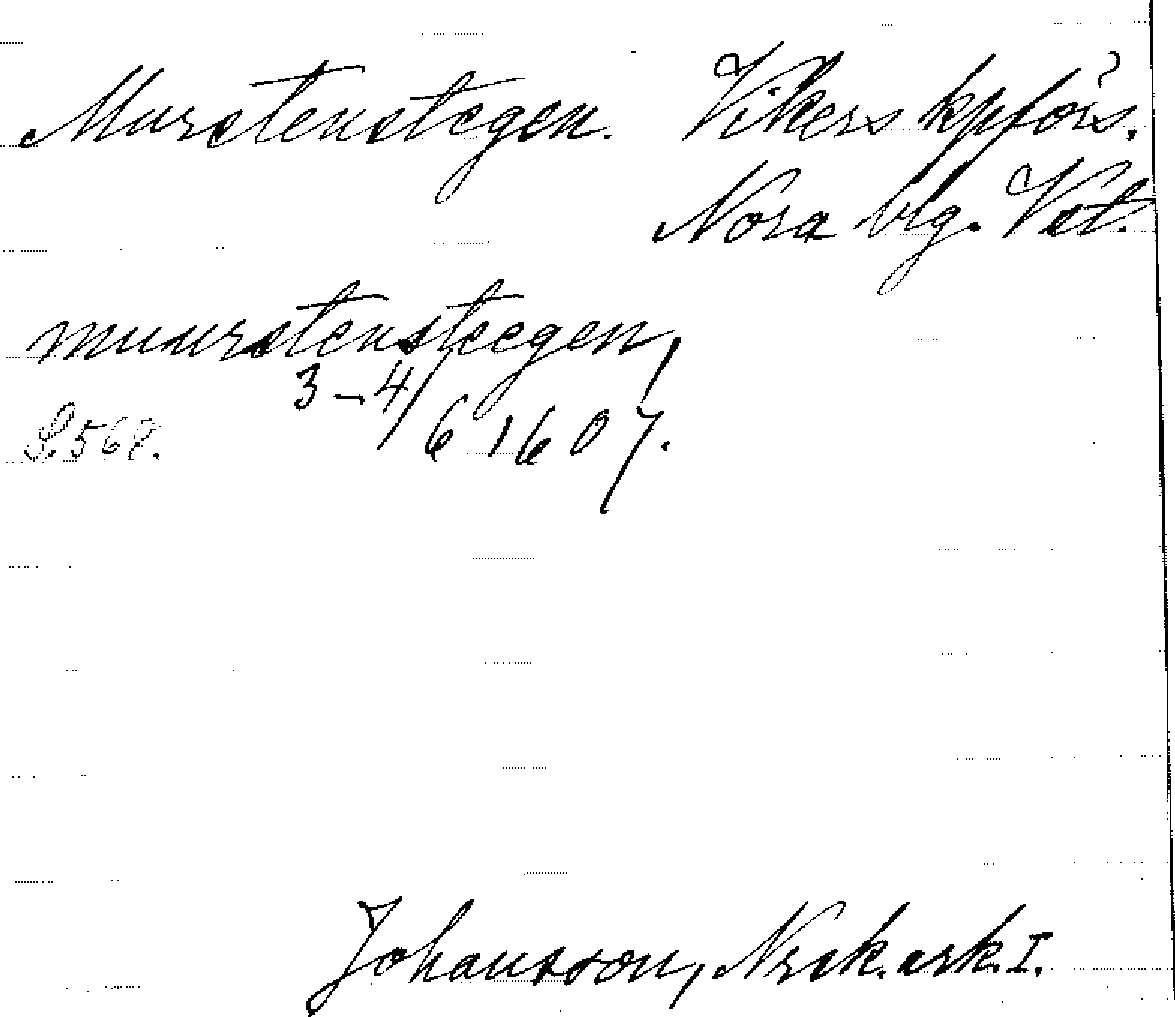 Murstenstegen. Vikers kpförs.
Nora blg. Vst.
muurstensteegen,
3-4/6 1607.
S. 568.
Johansson, Nrsk. ark. I.